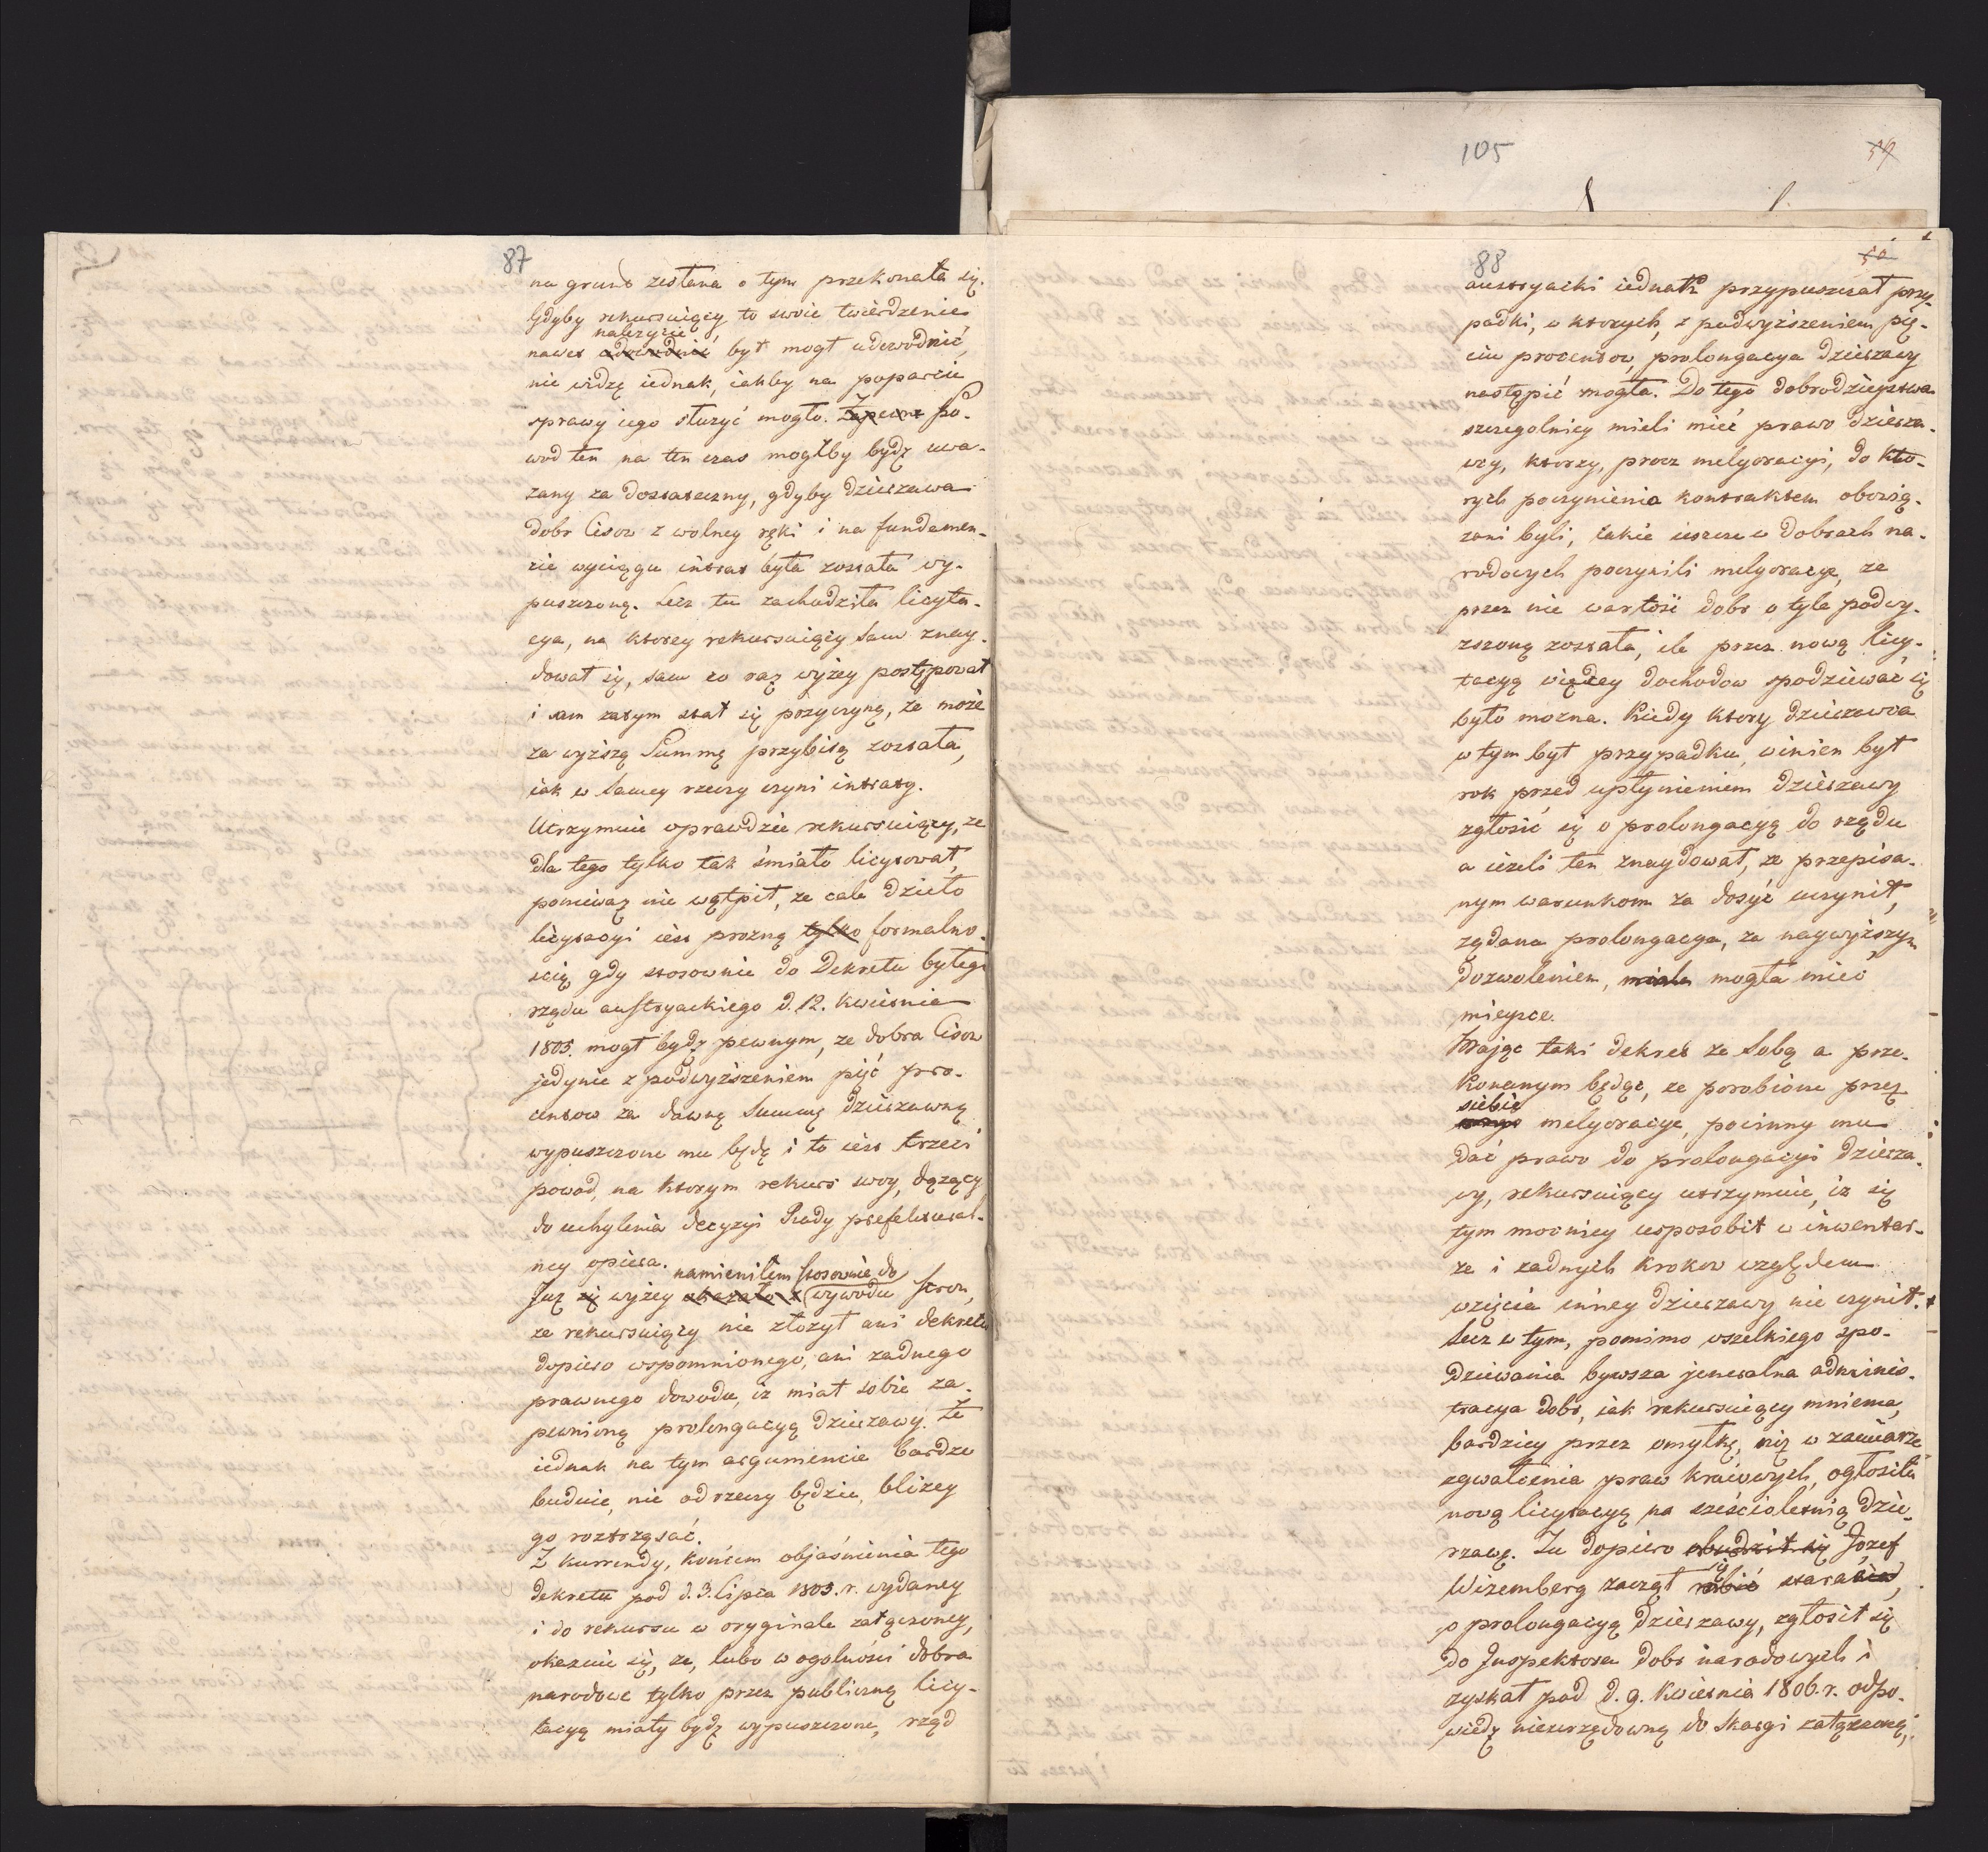 105
59
87
na grunt zesłana o tym przekonała się.
Gdyby rekursuiący to swoie twierdzenie
należycie
nawet udowodnić był mogł udowodnić,
nie widzę iednak, iakby na poparcie
sprawy iego służyć mogło. Zapewne Po-
wod ten na ten czas mogłby bydź uwa-
zany za dostateczny, gdyby dzierzawa
dobr Cisow z wolney ręki i na fundamen-
cie wyciągu intrat była została wy-
puszczoną. Lecz tu zachodziła licyta-
cya, na ktorey rekursuiący sam znay-
dował się, sam co raz wyżey postępował
i sam zatym stał się przyczyną, że może
za wyższą Summę przybitą została,
iak w samey rzeczy czyni intraty.
Utrzymuie wprawdzie rekursuiący, ze
dla tego tylko tak śmiało licytował,
ponieważ nie wątpił, ze całe dzieło
licytacyi iest prozną tylko formalno-
ścią gdy stosownie do Dekretu byłego
rządu austryackiego d. 12. Kwietnia
1805. mogł bydź pewnym, ze dobra Cisow
jedynie z podwyższeniem pięć pro-
centow za dawną Summę dzierzawną
wypuszczone mu będą i to iest trzeci
powod, na ktorym rekurs swoy, dążący
do uchylenia decyzyi Rady prefektural-
ney opiera.
namieniłem stosownie do
Juz się wyżey okazało z wywodu stron,
ze rekursuiący nie złożył ani dekretu
dopiero wspomnionego, ani zadnego
prawnego dowodu, iz miał sobie za-
pewnioną prolongacyą dzierzawy. Że
iednak na tym argumencie bardzo
buduie, nie od rzeczy będzie, bliżey
go roztrząsać.
Z kurrendy, końcem objaśnienia tego
dekretu pod d. 3. lipca 1805. r. wydaney
i do rekursu w oryginale załączoney,
okazuie się, ze, lubo w ogolności dobra
narodowe tylko przez publiczną licy-
tacyą miały bydź wypuszczone, rząd
88
50
austryacki iednak przypuszczał przy-
padki, w ktorych, z podwyższeniem pię-
ciu procentow, prolongacya dzierzawy
nastąpić mogła. Do tego dobrodzieystwa
szczegolniey mieli mieć prawo dzierza-
wcy, ktorzy, procz melyoracyi, do kto-
rych poczynienia kontraktem obowią-
zani byli, takie ieszcze w dobrach na-
rodowych poczynili melyoracye, ze
przez nie wartość dobr o tyle podwy-
zszoną została, ile przez nową licy-
tacyą więcey dochodow spodziewać się
było mozna. Kiedy ktory dzierzawca
w tym był przypadku, winien był
rok przed upłynieniem dzierzawy
zgłosić się o prolongacyą do rządu
a iezeli ten znaydował, ze przepisa-
nym warunkom za dosyć uczynił,
ządana prolongacya, za naywyższym
dozwoleniem, miała mogła mieć
mieysce.
Mając taki dekret za sobą a prze-
konanym będąc, ze porobione przez
siebie
melyoracye, powinny mu
dać prawo do prolongacyi dzierza-
wy, rekursuiący utrzymuie, iz się
tym mocniey usposobił w inwentar-
ze i zadnych krokow względem
wzięcia inney dzierzawy nie czynił.
Lecz w tym, pomimo wszelkiego spo-
dziewania bywsza jeneralna adminis-
tracya dobr, iak rekursuiący mniema,
bardziey przez omyłkę, niż w zamiarze
zgwałcenia praw kraiowych, ogłosiła
nową licytacyą na sześcioletnią dzie-
rzawę. Tu dopiero obudził się Jozef
Wizemberg zaczął robić starać
się
o prolongacyą dzierzawy, zgłosił się
do Inspektora dobr narodowych i
zyskał pod d. 9. Kwietnia 1806. r. odpo-
wiedź nieurzędowną do skargi załączoną,